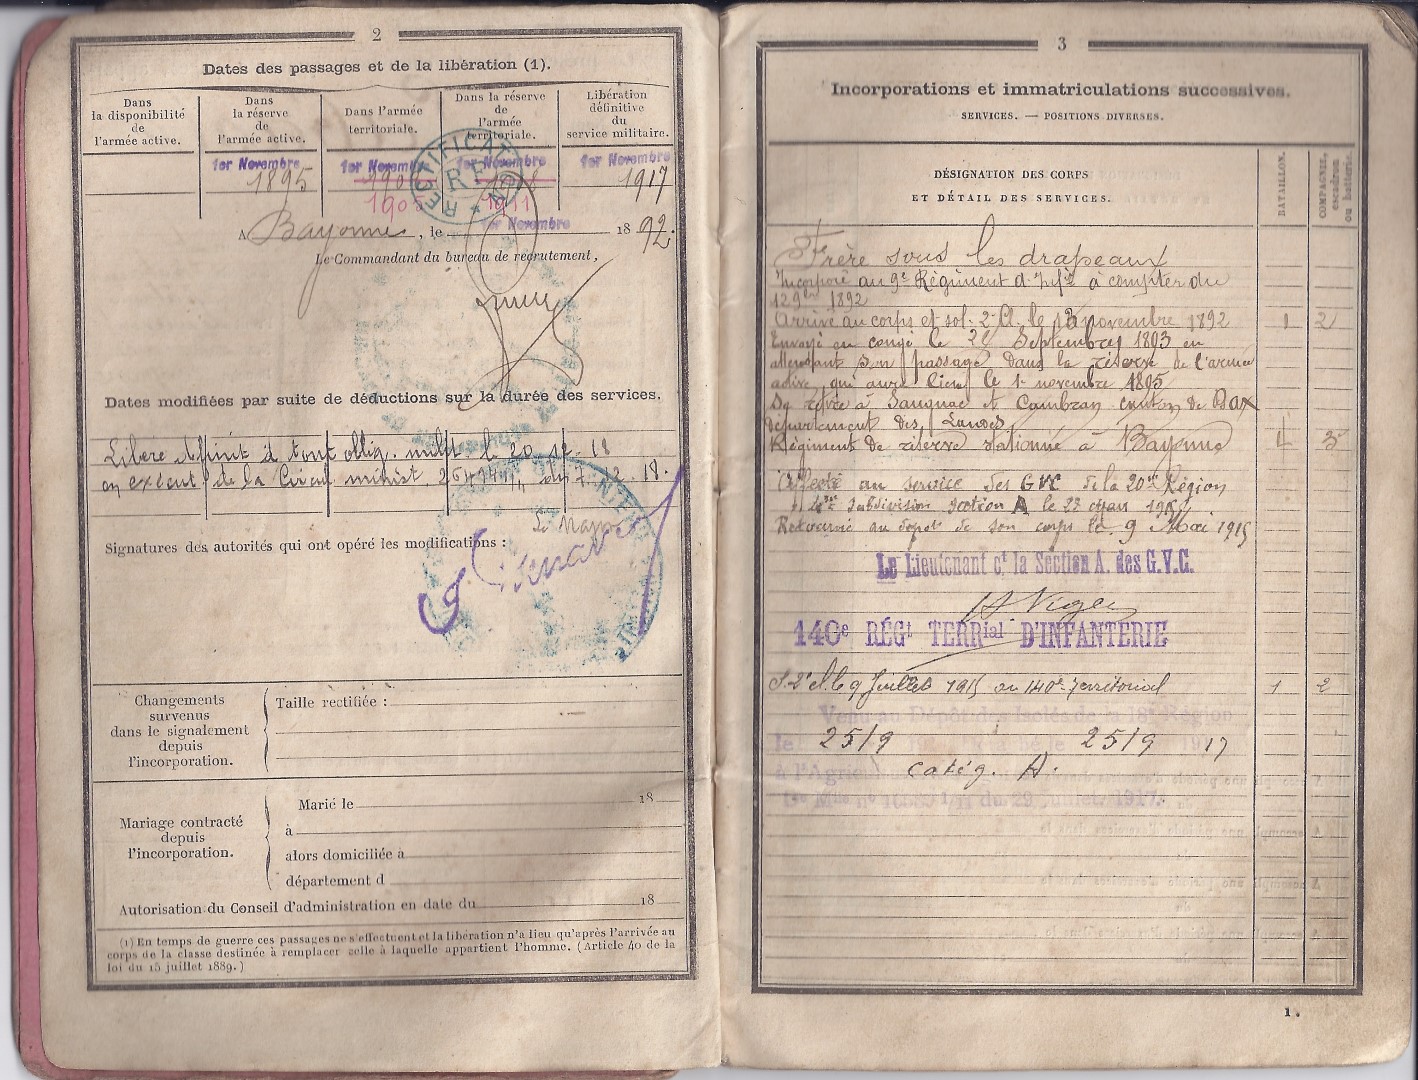 2
Dates des passages et de la libération (1).
Dans
la disponibilité
de
l'armée active.
Dans
la réserve
de
l'armée active.
Dans l'armée
territoriale.
Dans la réserve
de
l'armée
territoriale.
Libération
définitive
du
service militaire.
1er Novembre
1895
1er Novembre
1905
1er Novembre
1911
1er Novembre
1917
RECTIFICATION
RF
A Bayonne, le 1er Novembre 1892.
Le Commandant du bureau de recrutement,
Dates modifiées par suite de déductions sur la durée des services.
Libéré définit d tout oblig. milit. le 20 12 18
en exécut de la Circul minist. du 7 2 18.
Le Major
Signatures des autorités qui ont opéré les modifications :
Changements
survenus
dans le signalement
depuis
l'incorporation.
Taille rectifiée :
Mariage contracté
depuis
l'incorporation.
Marié le 18
à
alors domiciliée à
département d
Autorisation du Conseil d'administration en date du 18
(1) En temps de guerre ces passages ne s'effectuent et la libération n'a lieu qu'après l'arrivée au
corps de la classe destinée à remplacer celle à laquelle appartient l'homme. (Article 40 de la
loi du 15 juillet 1889.)
3
Incorporations et immatriculations successives.
SERVICES. — POSITIONS DIVERSES.
DÉSIGNATION DES CORPS
ET DÉTAIL DES SERVICES.
BATAILLON.
COMPAGNIE,
escadron
ou batterie.
Frère sous les drapeaux
Incorporé au 9e Régiment d'Infie à compter du
1892
Arrivé au corps et sol. 2e Cl. le 13 novembre 1892 1 2
Envoyé en congé le 24 Septembre 1893 en
attendant son passage dans la réserve de l'armée
active, qui aura lieu le 1r novembre 1895
Se retire à Saugnac et Cambran canton de Dax
département des Landes
Régiment de réserve stationné à Bayonne 4 3
Affecté au service des GVC de la 20me Région
Subdivision Section A le 23 mars 1915
Retourné au dépôt de son corps le 9 Mai 1915
Le Lieutenant ct la Section A. des G.V.C.
140e RÉGt TERRial D'INFANTERIE
S. 2e cl. le 9 Juillet 1915 au 140e Territorial 1 2
Venu au Dépôt des Isolés de la 18e Région
le 25/9 25/9 1917
à l'Agric catég. A.
du 29 Juillet 1917.
1.